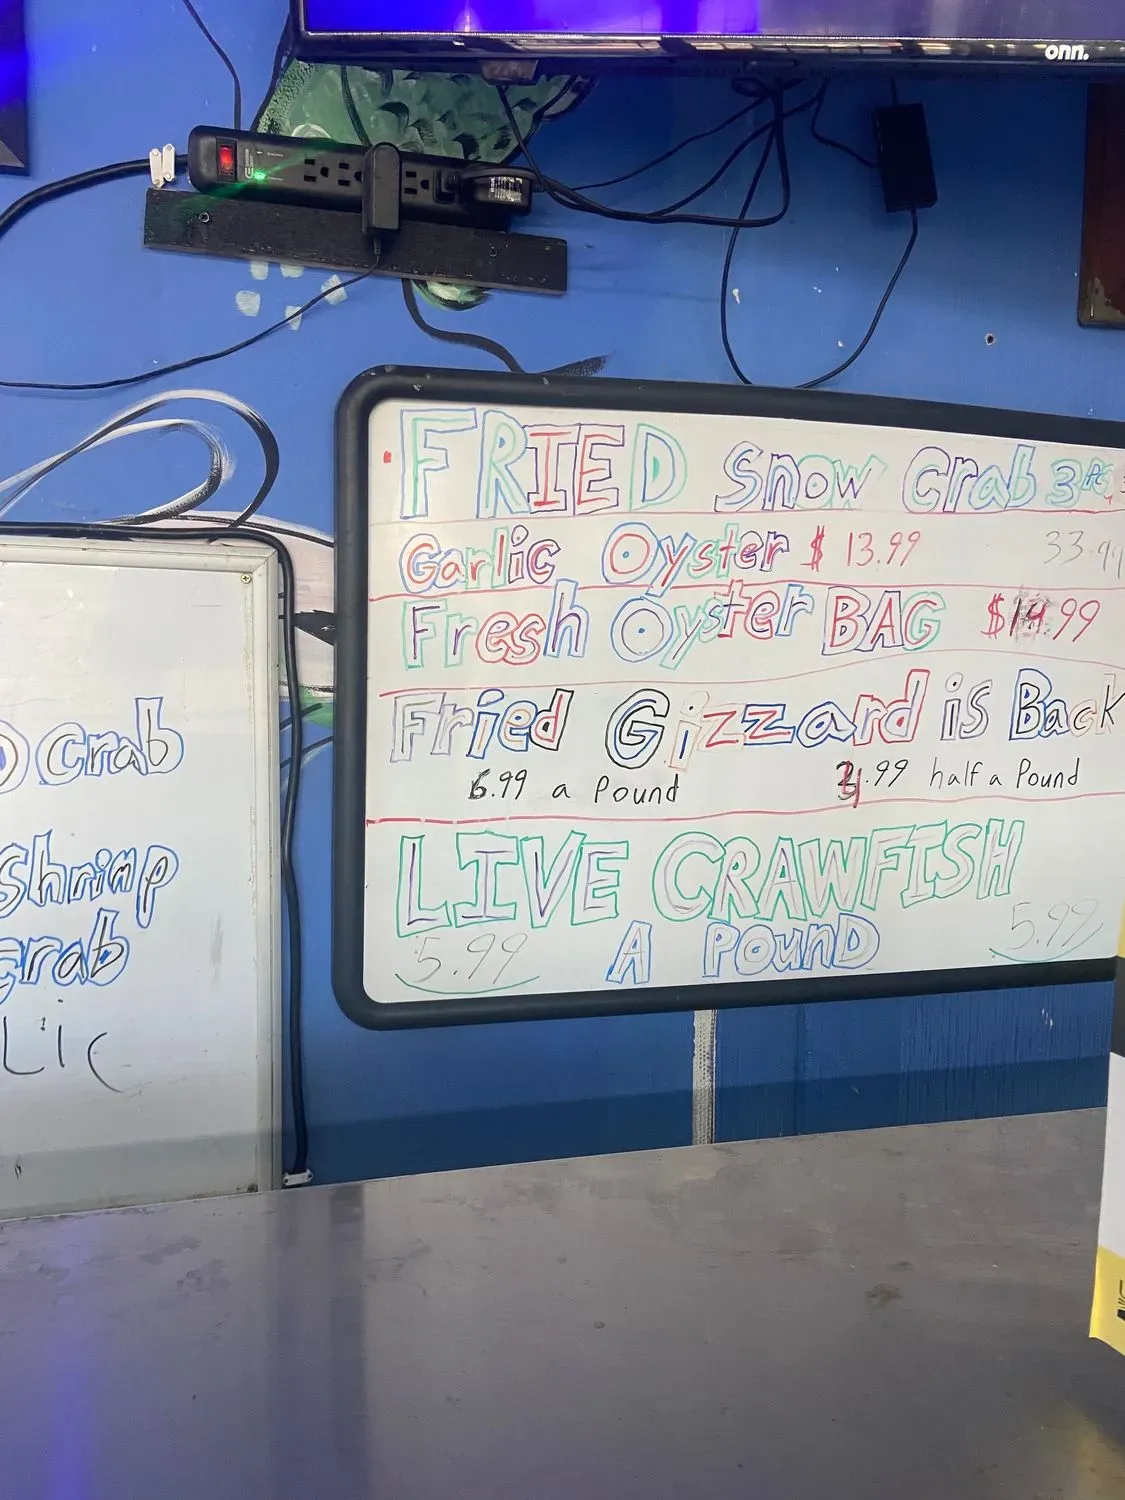 onn.
FRIED Snow Crab 3
Garlic Oyster $ 13.99 33.99
Fresh Oyster BAG $14.99
Fried Gizzard is Back
6.99 a Pound .99 half a Pound
LIVE CRAWFISH
5.99 A POUND 5.99
Crab
Shrimp
Crab
Lic